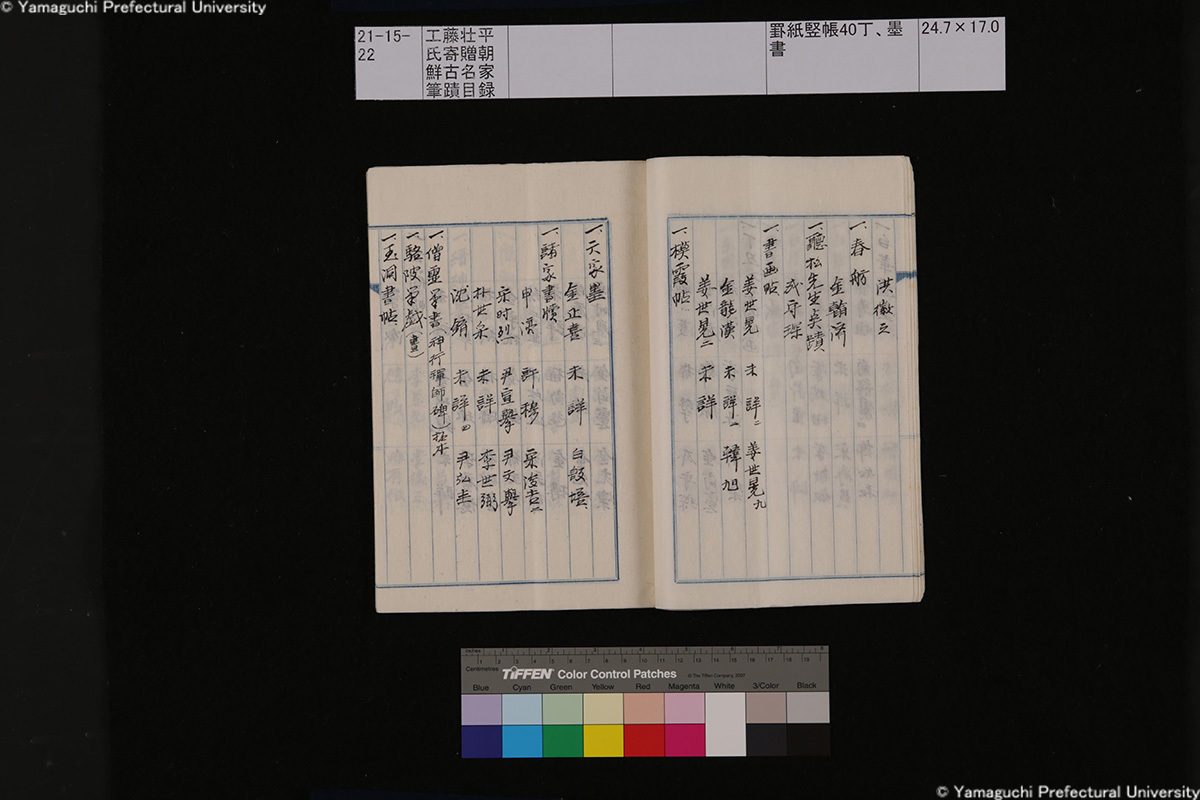 © Yamaguchi Prefectural University
21-15-22
工藤壮平
氏寄贈朝
鮮古名家
筆蹟目録
罫紙竪帳40丁、墨
書
24.7×17.0
洪徴之
一、春舫
金翰濟
一、聽松先生眞蹟
成守琛
一、書画帖
姜世晃 未詳二 姜世晃九
金龍漢 未詳一 韓旭
姜世晃二 未詳
一、模霞帖
一、天家墨
金正喜 未詳 白殷培
一、諸家書牘
申濡 許穆 宋浚吉二
宋時烈 尹宣擧 尹文擧
朴世采 未詳 李世弼
沈錥 未詳四 尹弘圭
一、僧靈業書(神行禪師碑)拓本
一、駱坡筆戯(畫)
一、玉洞書帖
inches 1 2 3 4 5 6 7 8
Centimetres 1 2 3 4 5 6 7 8 9 10 11 12 13 14 15 16 17 18 19
TIFFEN Color Control Patches
© The Tiffen Company, 2007
Blue Cyan Green Yellow Red Magenta White 3/Color Black
© Yamaguchi Prefectural University